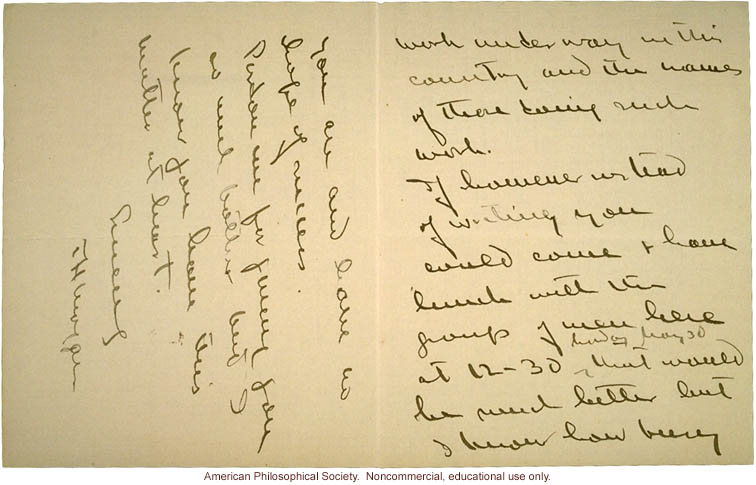 work under way in this
country and the names
of those doing such
work.
If however instead
of writing you
could come & have
lunch with the
group of men here
Friday May 30
at 12-30 ^ that would
be much better but
I know how busy
you are and have no
hope of success.
Pardon me for giving you
so much bother but I
know you have this
matter at heart.
Sincerely
T H Morgan
American Philosophical Society. Noncommercial, educational use only.